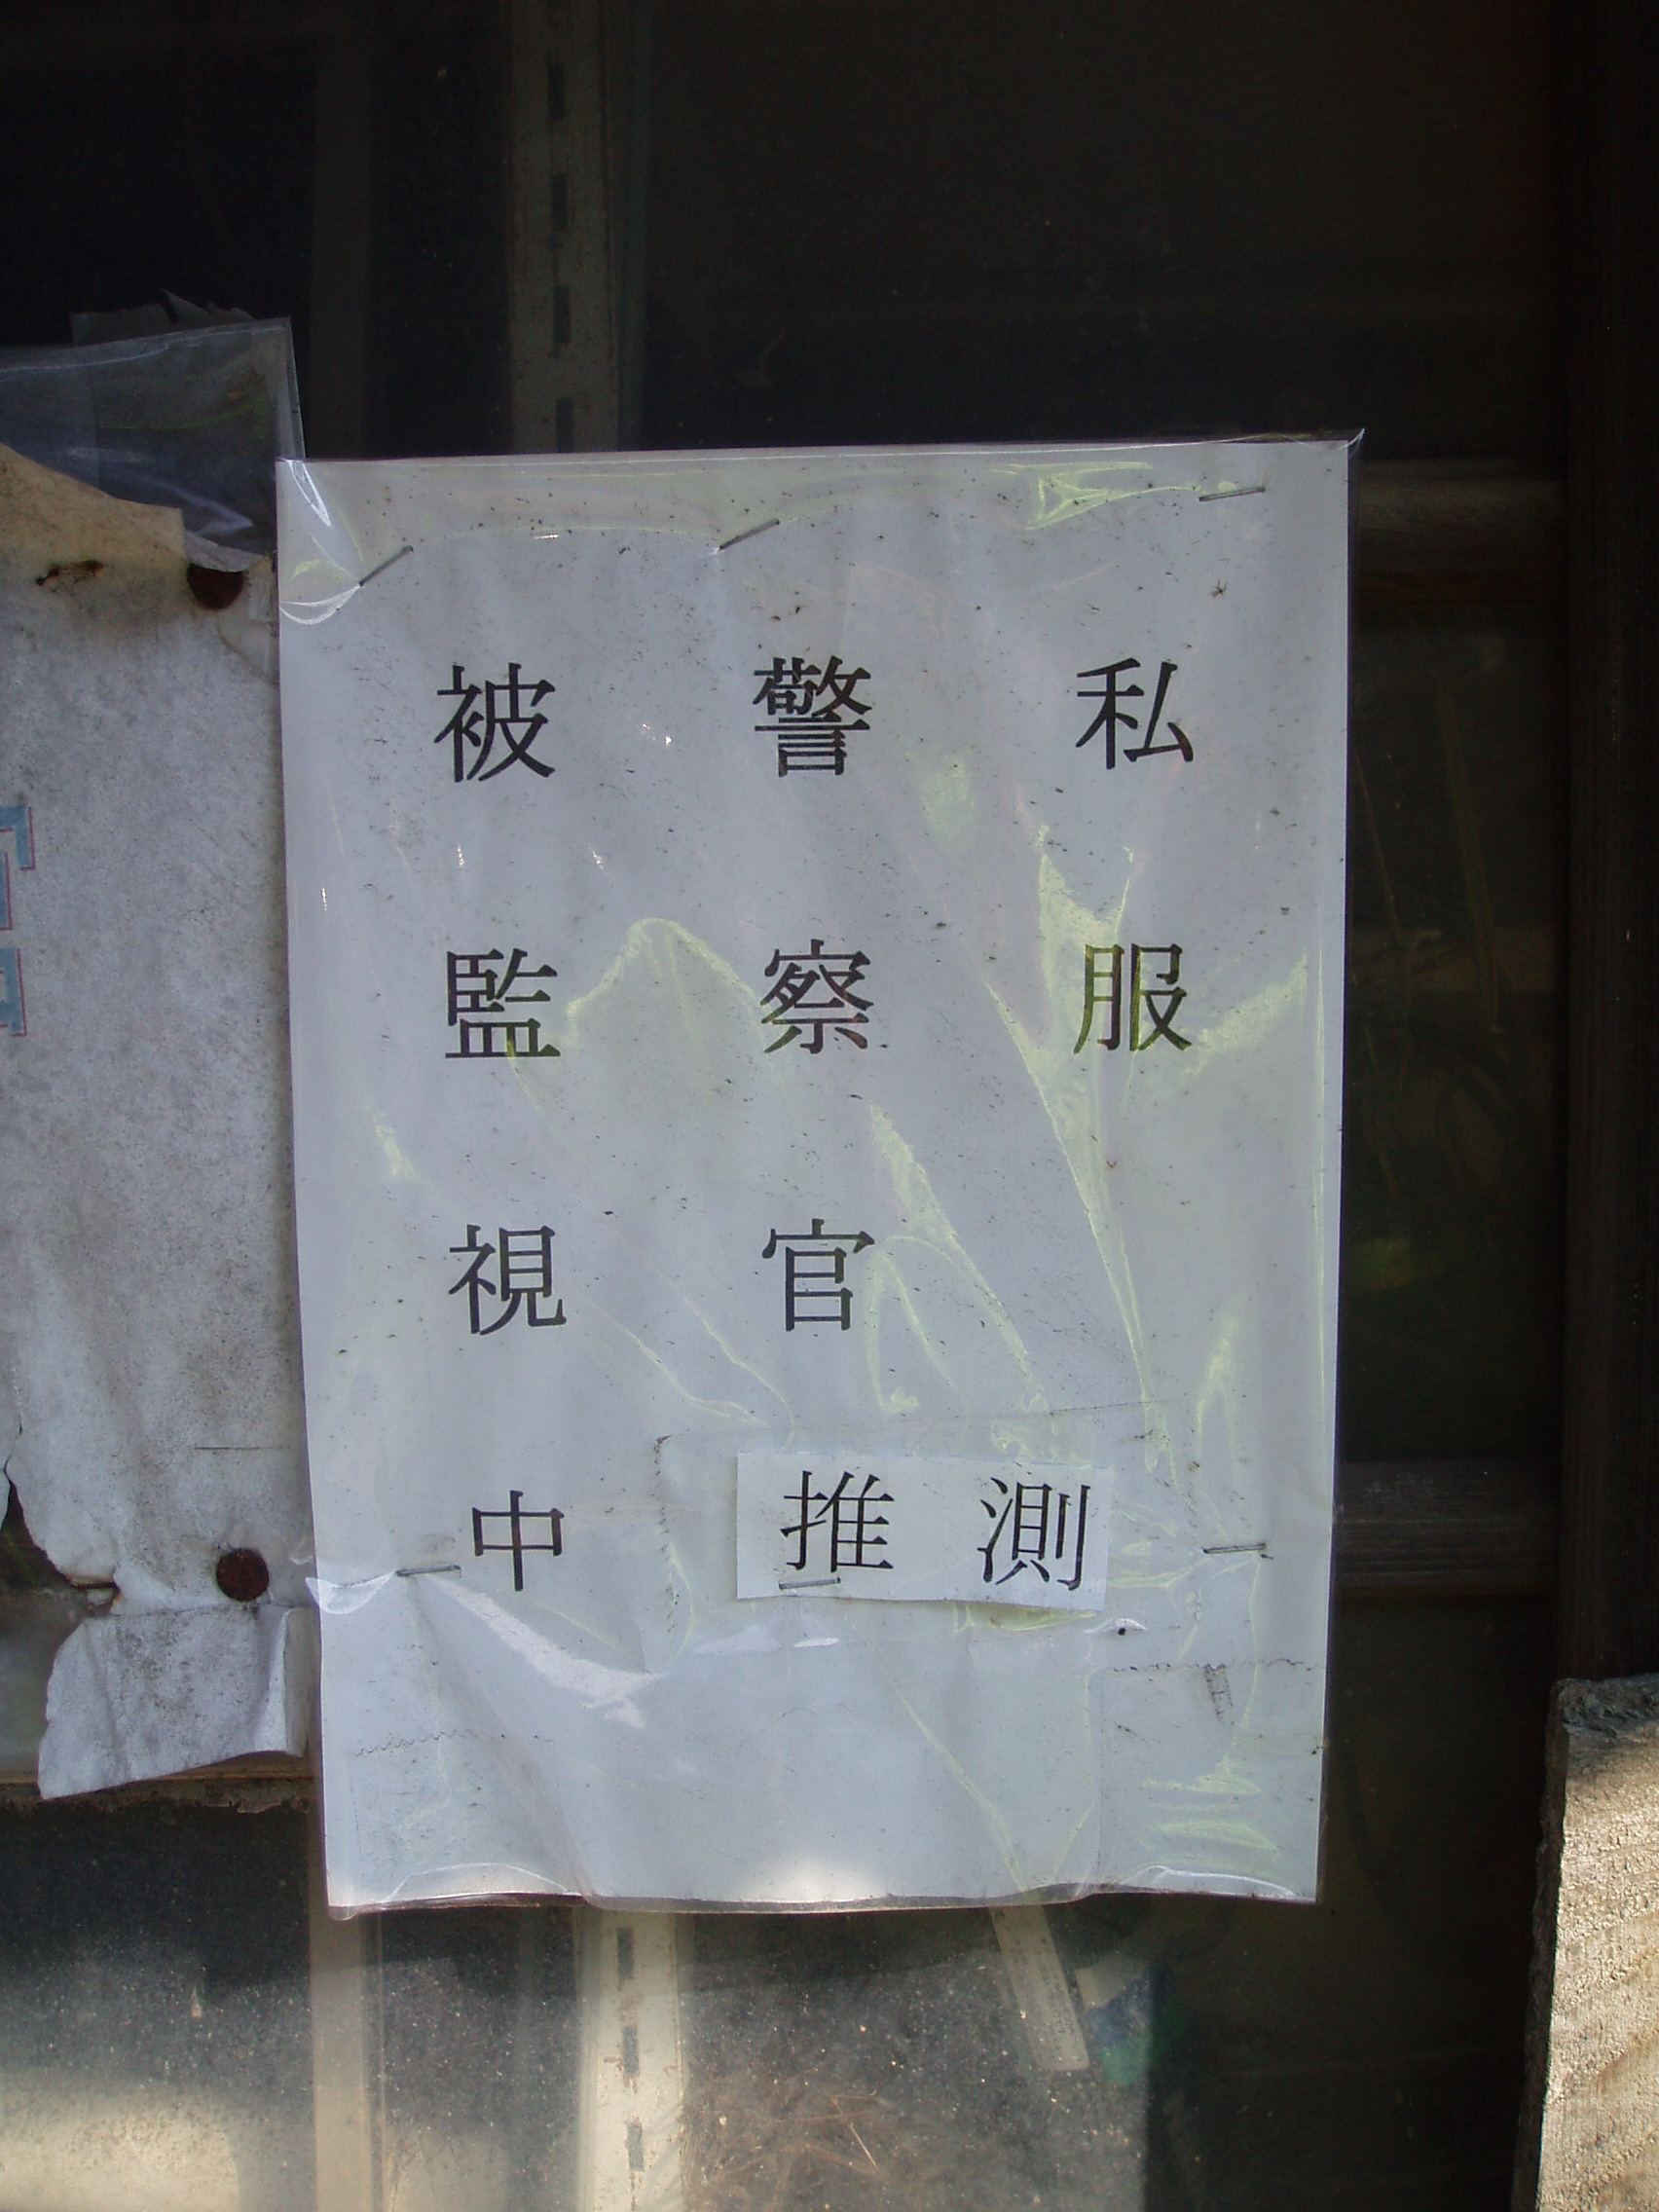 私服
警察官
被監視中
推測